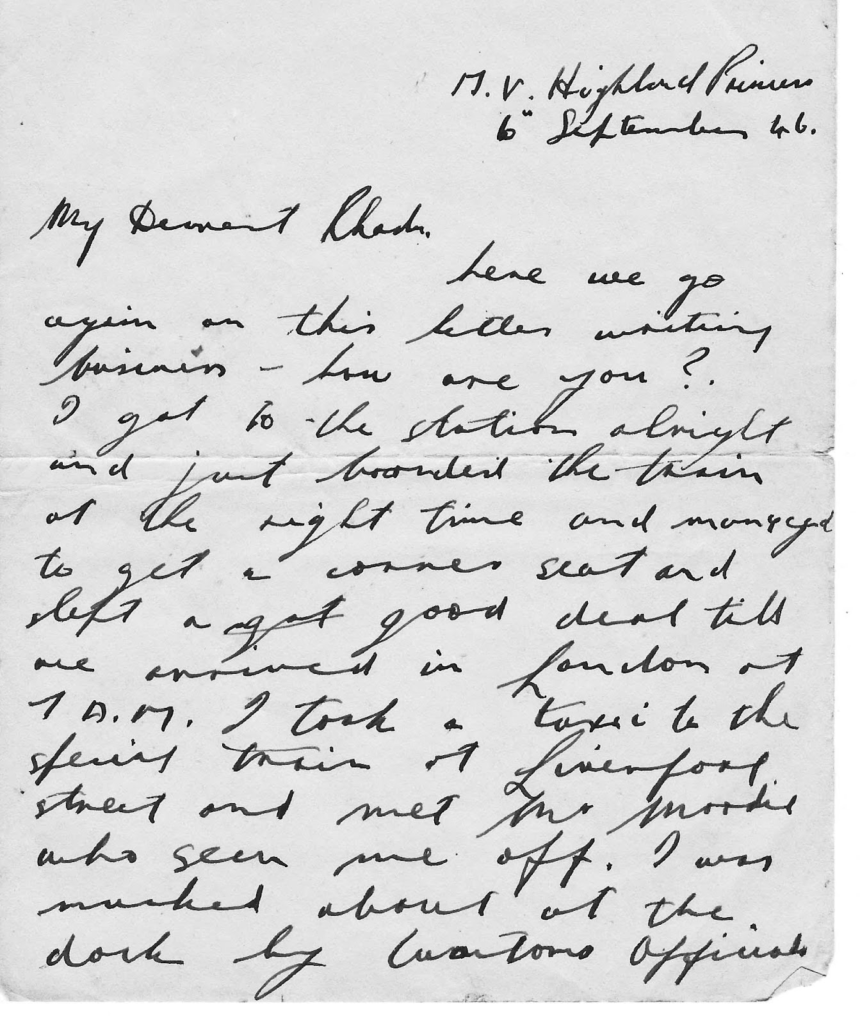 M.V. Highland Princess
6" September 46.
My Dearest Rhoda.
here we go
again on this letter writing
business - how are you?.
I got to the station alright
and just boarded the train
at the right time and managed
to get a corner seat and
slept a got good deal till
we arrived in London at
7 A.M. I took a taxi to the
special train at Liverpool
street and met Mr Moodie
who seen me off. I was
mucked about at the
dock by Customs Officials